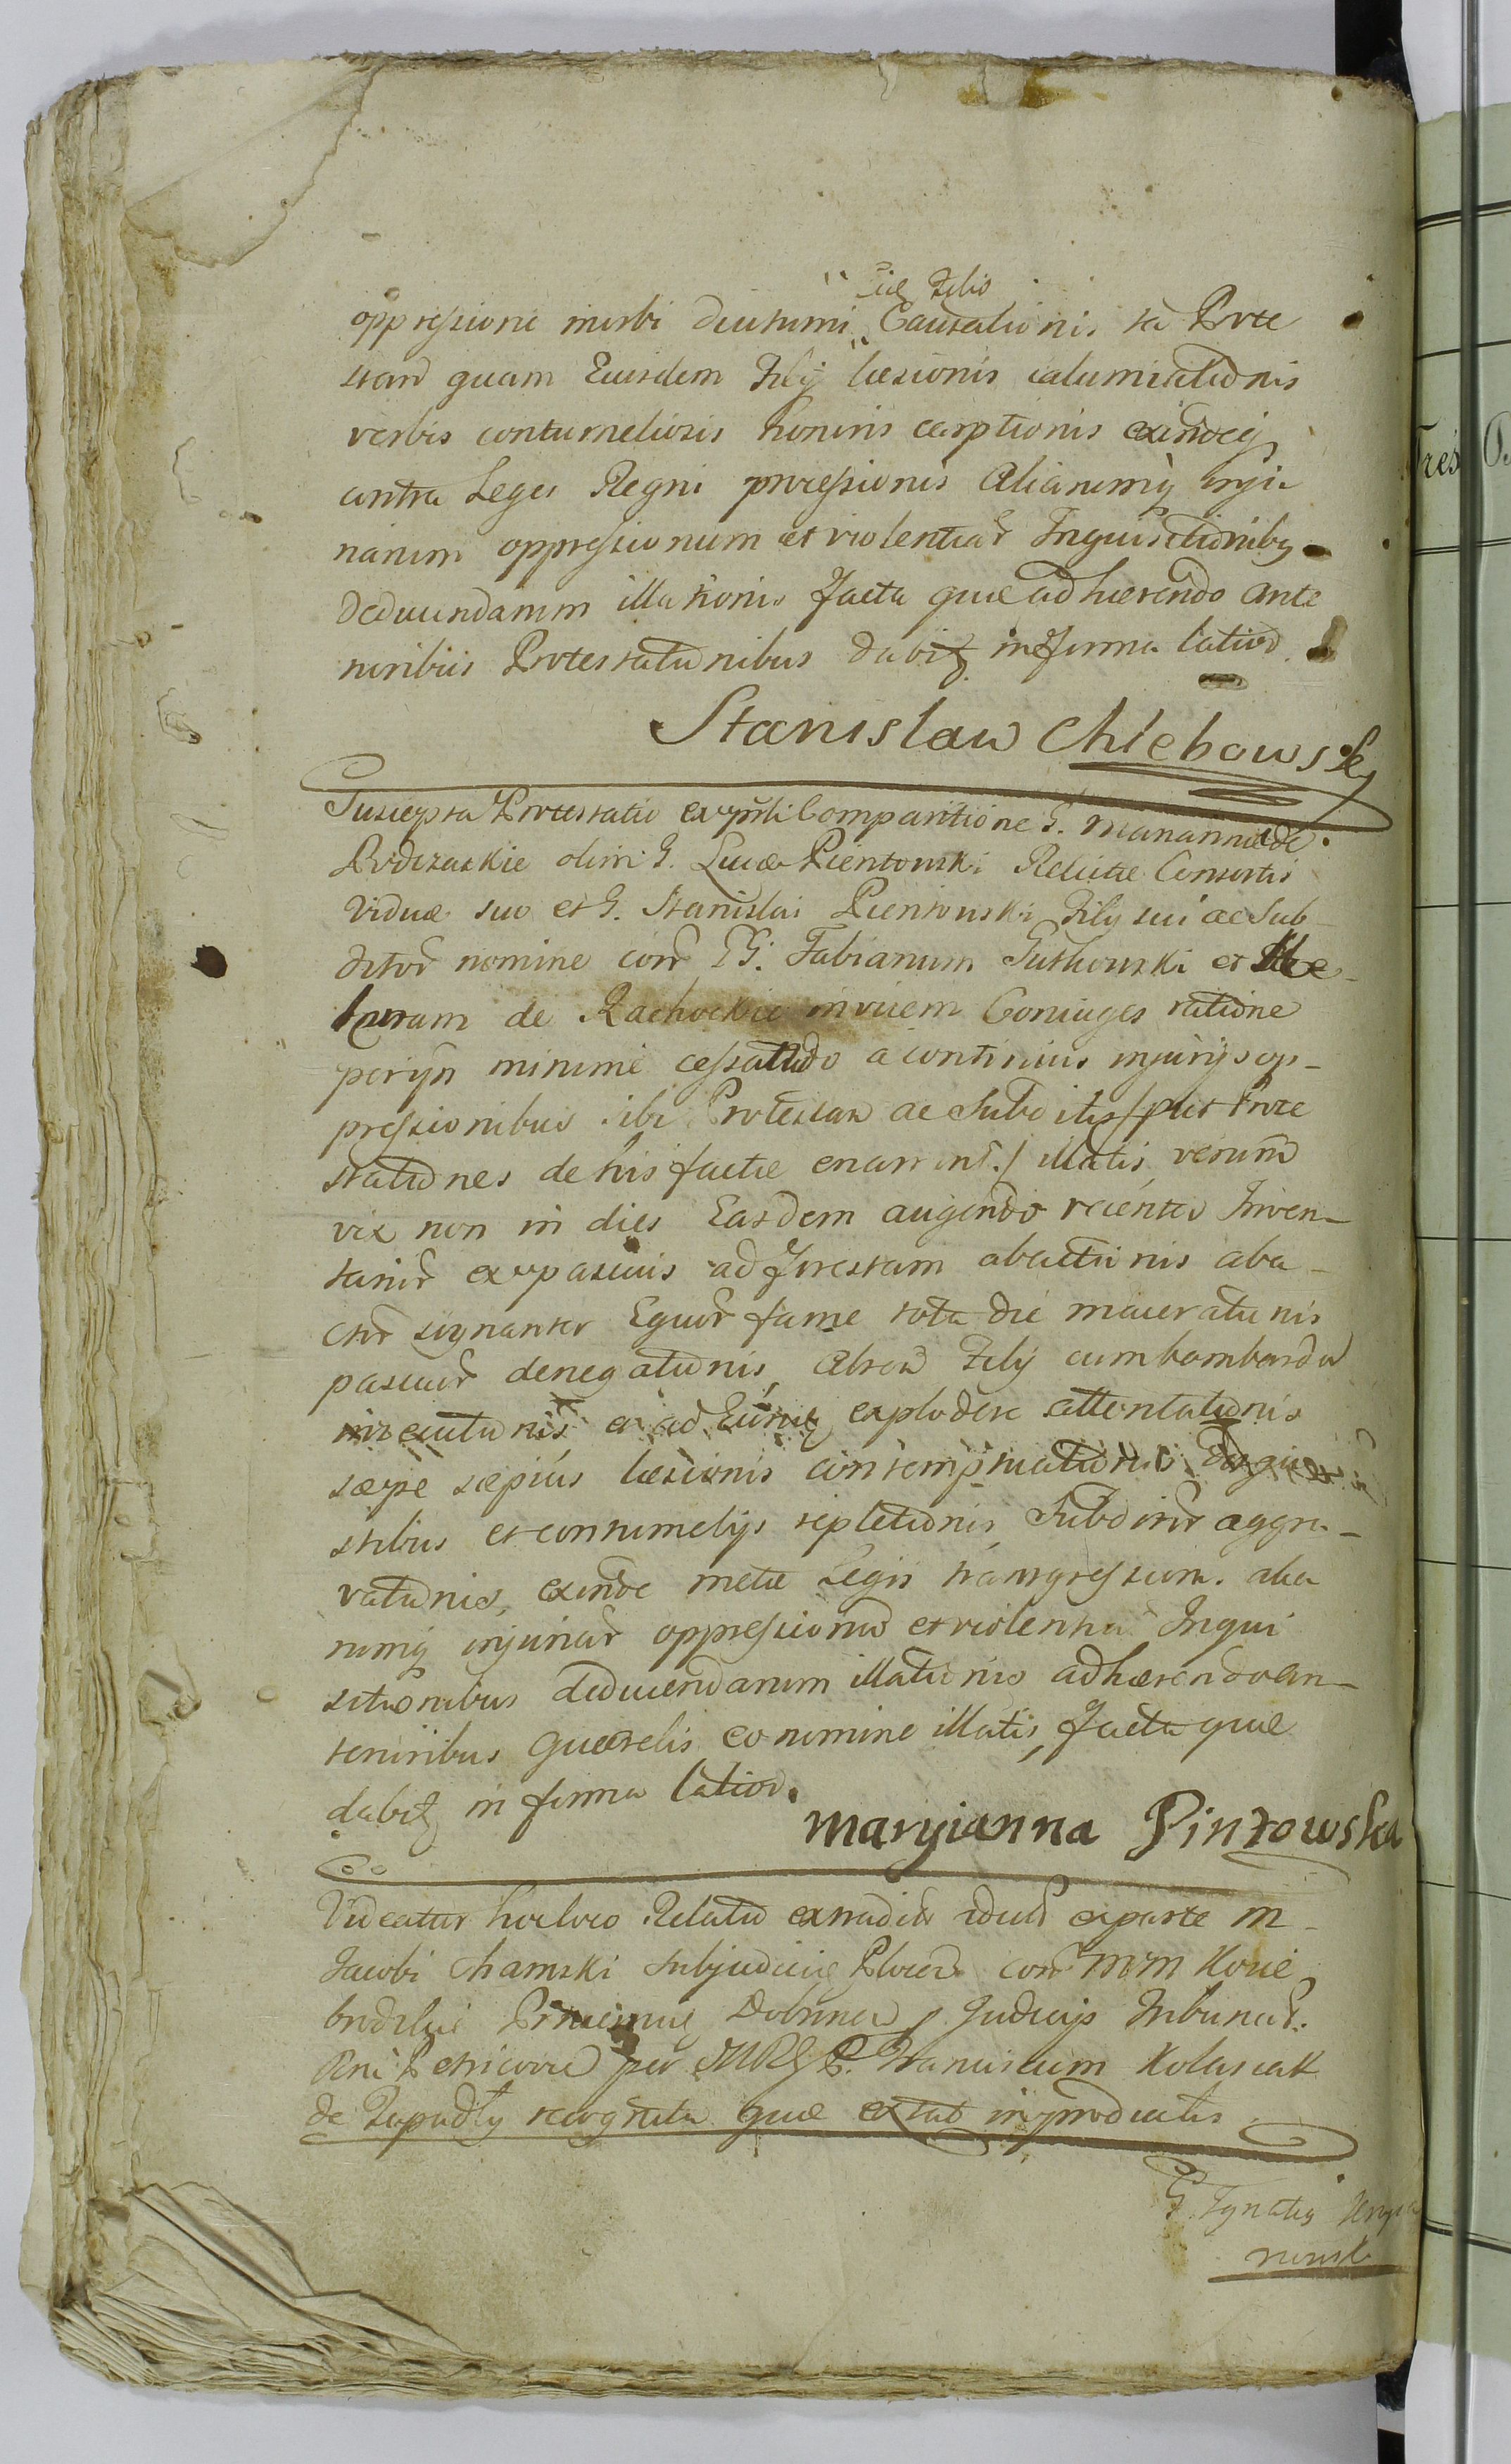 eiq Filio
oppressione morbi diuturni Causationis ta Prote
stan quam Eiusdem Filij læsionis calumniationis
verbis contumeliosis honoris carptionis exindeq
contra Leges Regni processionis Aliarumq inju
riarum oppressionum et violentiar Inquisitionibq
deducendarum illationis facta quæ adhærendo ante
rioribus Protestationibus dabitq in forma latiori
Stanislaw Chlebowsky
Suscepta Protestatio ex psti Comparitione G. Mariannæ de
Rudzaskie olim G. Lucæ Pientowski Relictæ Consortis
Viduæ suo et G. Stanislai Pientowski Filij sui ac Sub
ditor nomine con GG. Fabianum Gutkowski et
de Rachockie invicem Coniuges ratione
minime cessando a continuis injurijs op-
pressionibus sibi Protestan ac Subditis /:put Prote
stationes de his factæ enarrant:/ illatis, verum
vix non in dies Easdem augendo recenter Inven-
tarior ex pascuis ad forestam abactionis aba-
ctor signanter Equor fame tota die macerationis
pascuor denegationis, Filij cum bombarda
insecutionis et ad Eumq explodere attentationis
sæpe sæpius læsionis contemptuationis
stibus et contumelijs repletionis Subditor aggra-
vationis, exinde metæ Legis transgressionis alia
rumq injuriar oppressionu et violentiar Inqui
sitionibus deducendarum illationis adhærendo an-
terioribus Quærelis eo nomine illatis, facta quæ
dabitq in forma latiori.
Maryianna Pintowska
Videatur hocloco Relatio extraditi iduli ex parte M
Jacobi Chamski Subjudicis Plocen con MM Kocie
brodzkie Dobrinen Judicijs Tribunal.
Rni Petricovien per Franciscum Kolasiak
de recognita quæ extat in productis
G. Ignatiq